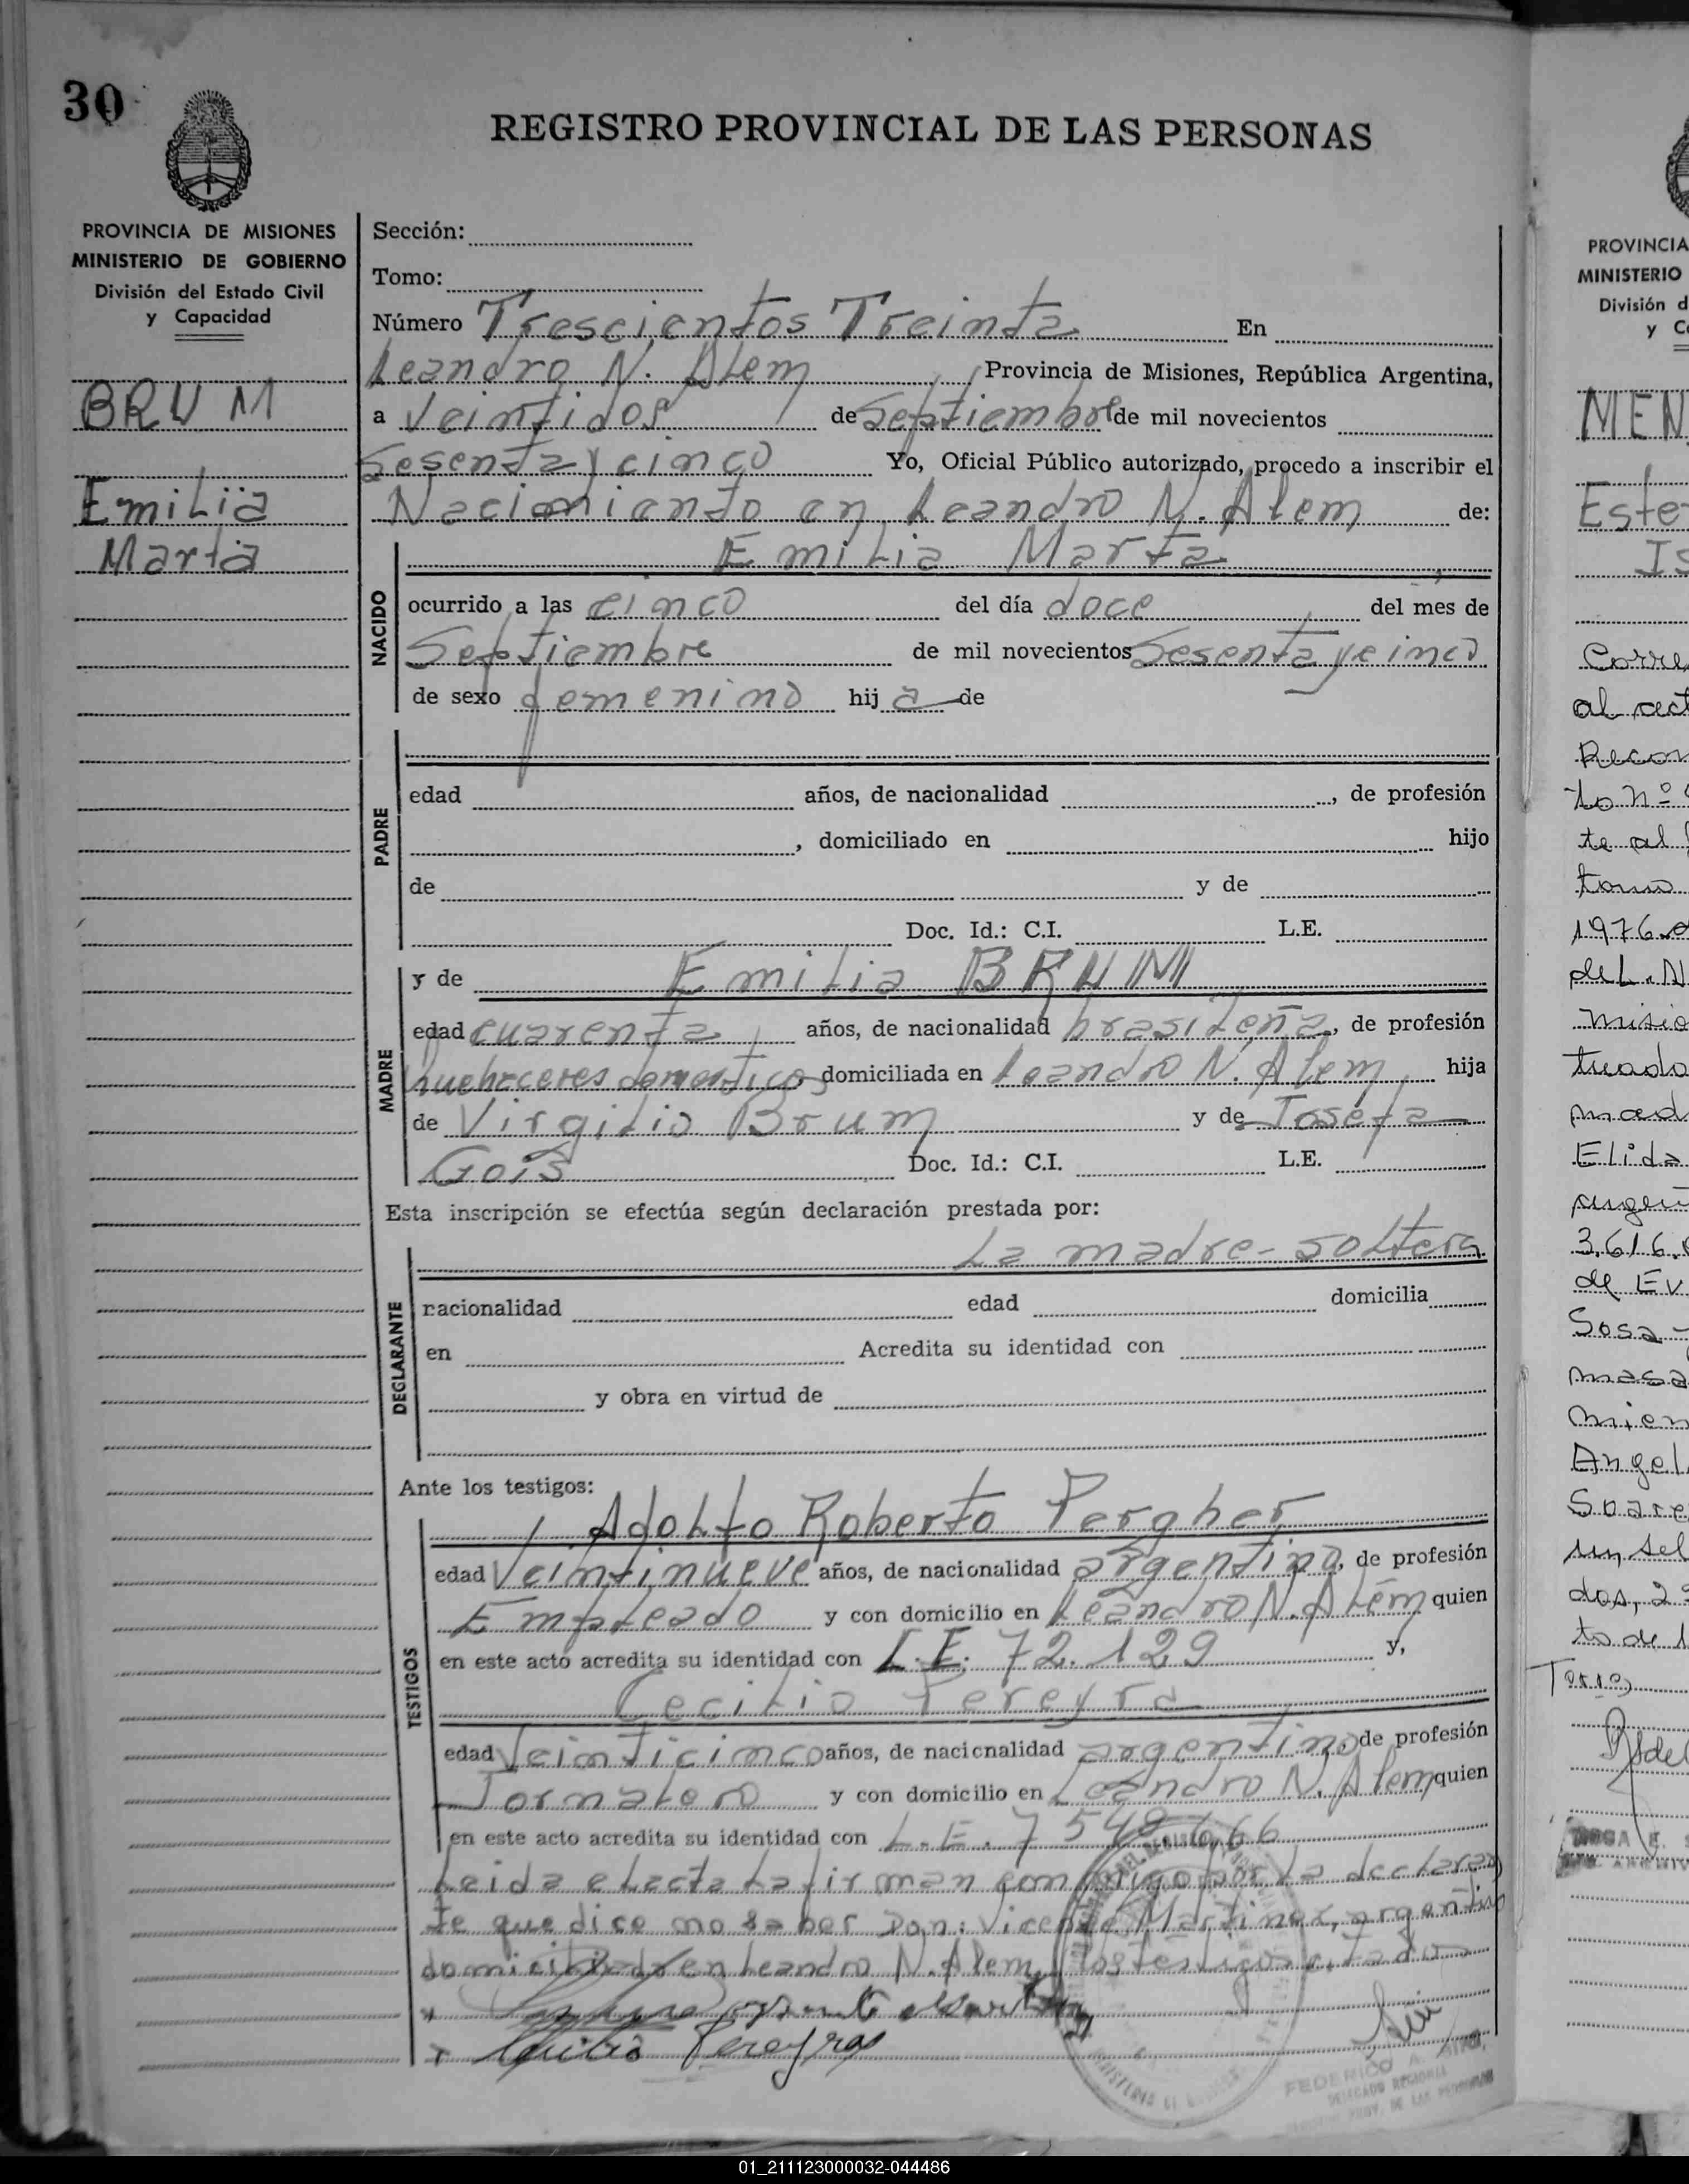 30
REGISTRO PROVINCIAL DE LAS PERSONAS
PROVINCIA DE MISIONES
MINISTERIO DE GOBIERNO
División del Estado Civil
y Capacidad
BRUM
Emilia
Marta
Sección:
Tomo:
Número Trescientos Treinta En
Leandro N. Alem, Provincia de Misiones, República Argentina,
a Veintidos de Septiembre de mil novecientos
Sesenta y cinco Yo, Oficial Público autorizado, procedo a inscribir el
Nacimiento en Leandro N. Alem de:
Emilia Marta
NACIDO
ocurrido a las cinco del día doce del mes de
Septiembre de mil novecientos Sesenta y cinco
de sexo femenino hija de
PADRE
edad años, de nacionalidad , de profesión
, domiciliado en hijo
de y de
Doc. Id.: C.I. L.E.
MADRE
y de Emilia BRUM
edad cuarenta años, de nacionalidad brasileña, de profesión
quehaceres domesticos domiciliada en Leandro N. Alem hija
de Virgilio Brum y de Josefa
Gois Doc. Id.: C.I. L.E.
Esta inscripción se efectúa según declaración prestada por:
La madre- soltera
DECLARANTE
nacionalidad edad domicilia
en Acredita su identidad con
y obra en virtud de
Ante los testigos:
Adolfo Roberto Pergher
TESTIGOS
edad Veintinueve años, de nacionalidad argentino, de profesión
Empleado y con domicilio en Leandro N. Alem quien
en este acto acredita su identidad con L.E. 72.129 y,
Cecilio Pereyra
edad Veinticinco años, de nacionalidad argentino, de profesión
Jornalero y con domicilio en Leandro N. Alem quien
en este acto acredita su identidad con L.E. 7 549
Leida el acta la firman conmigo por la declaran
te que dice no saber Don: Vicente Martinez, argentino
domiciliado en Leandro N. Alem, los testigos citados
Pereyra
FEDERICO A.
DELEGADO REGIONAL
PROVINCIA
MINISTERIO
División d
y C
MEN
Este
Is
Corre
al act
Recon
to nº
te al
tomo
1976
de L. N
misio
tuada
mad
Elida
argen
3.616.
de Ev
Sosa
masa
mien
Angel
Soare
un sel
dos, 2
to de 1
01_211123000032-044486